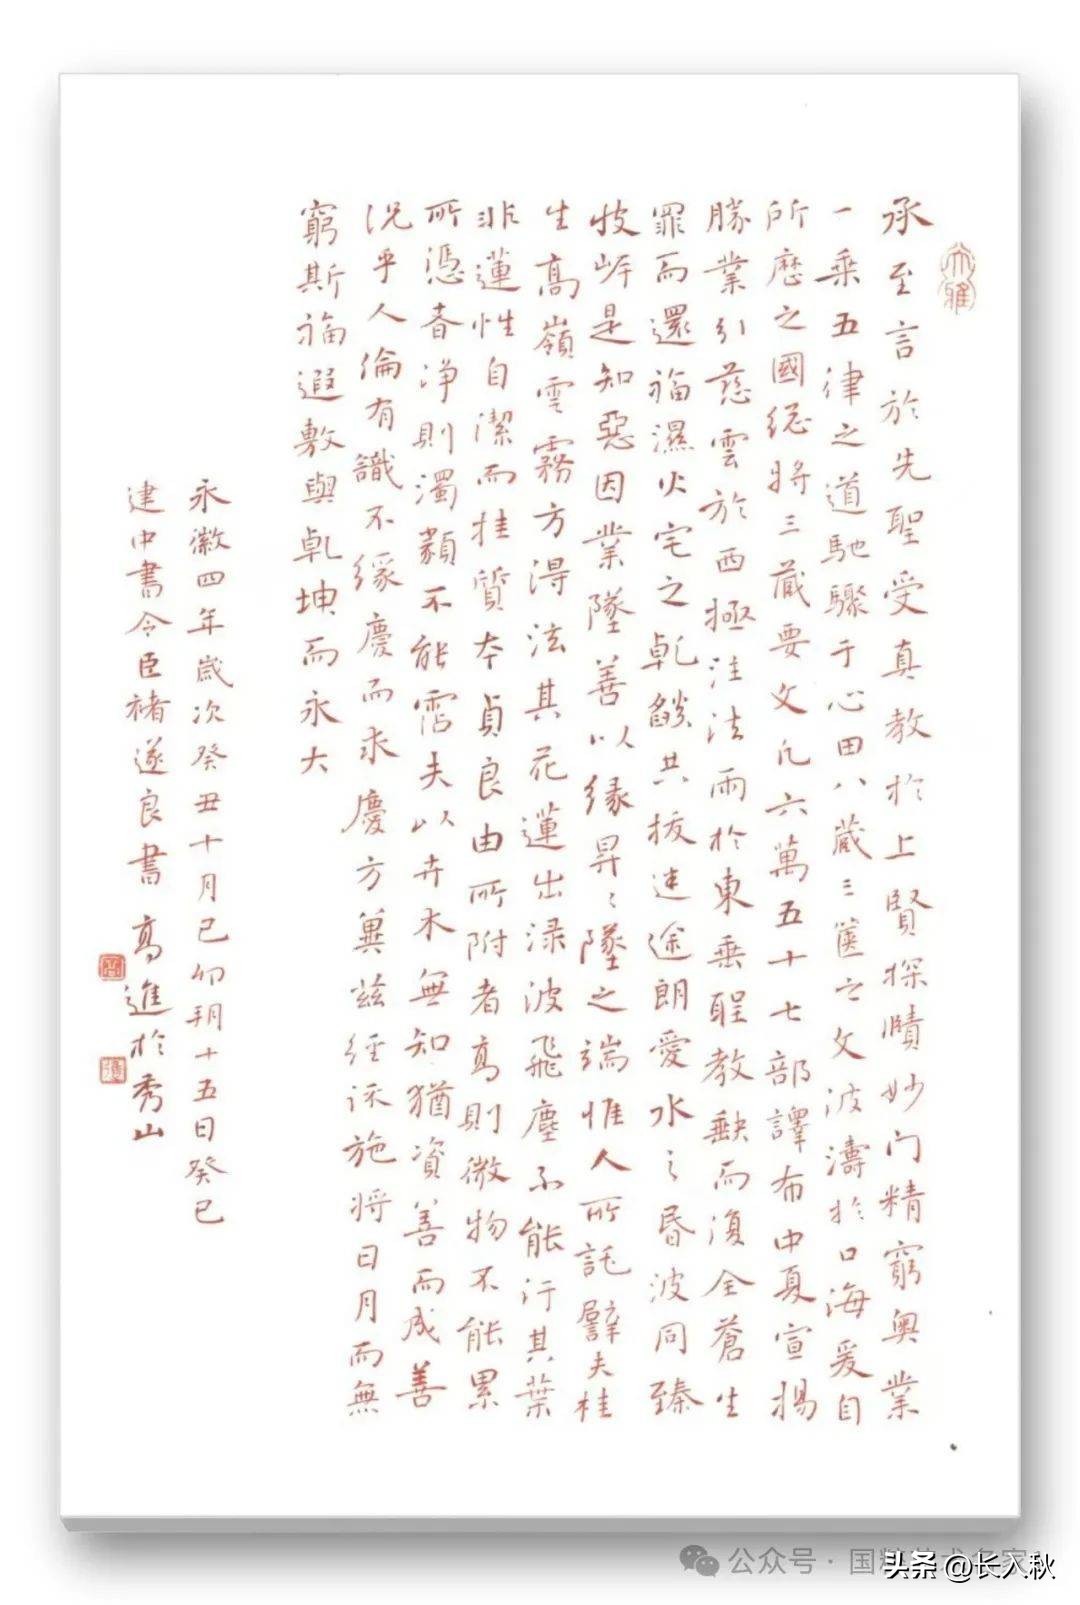 大雅
承至言於先聖受真教於上賢探賾妙门精窮奥業
一乘五律之道馳驟于心田八藏三篋之文波濤於口海爰自
所歷之國総將三藏要文凡六萬五十七部譯布中夏宣揚
勝業引慈雲於西極注法雨於東垂聖教缺而復全蒼生
罪而還福濕火宅之乹燄共拔迷途朗愛水之昏波同臻
彼岸是知惡因業墜善以緣昇〻墜之端惟人所託譬夫桂
生高嶺雲霧方得泫其花蓮出渌波飛塵不能汙其葉
非蓮性自潔而桂質本貞良由所附者高則微物不能累
所憑者淨則濁類不能霑夫以卉木無知猶資善而成善
況乎人倫有識不緣慶而求慶方兾茲經流施將日月而無
窮斯福遐敷與乹坤而永大
永徽四年歲次癸丑十月己卯朔十五日癸巳
建中書令臣褚遂良書 高進於秀山
公众号·国
头条@长入秋